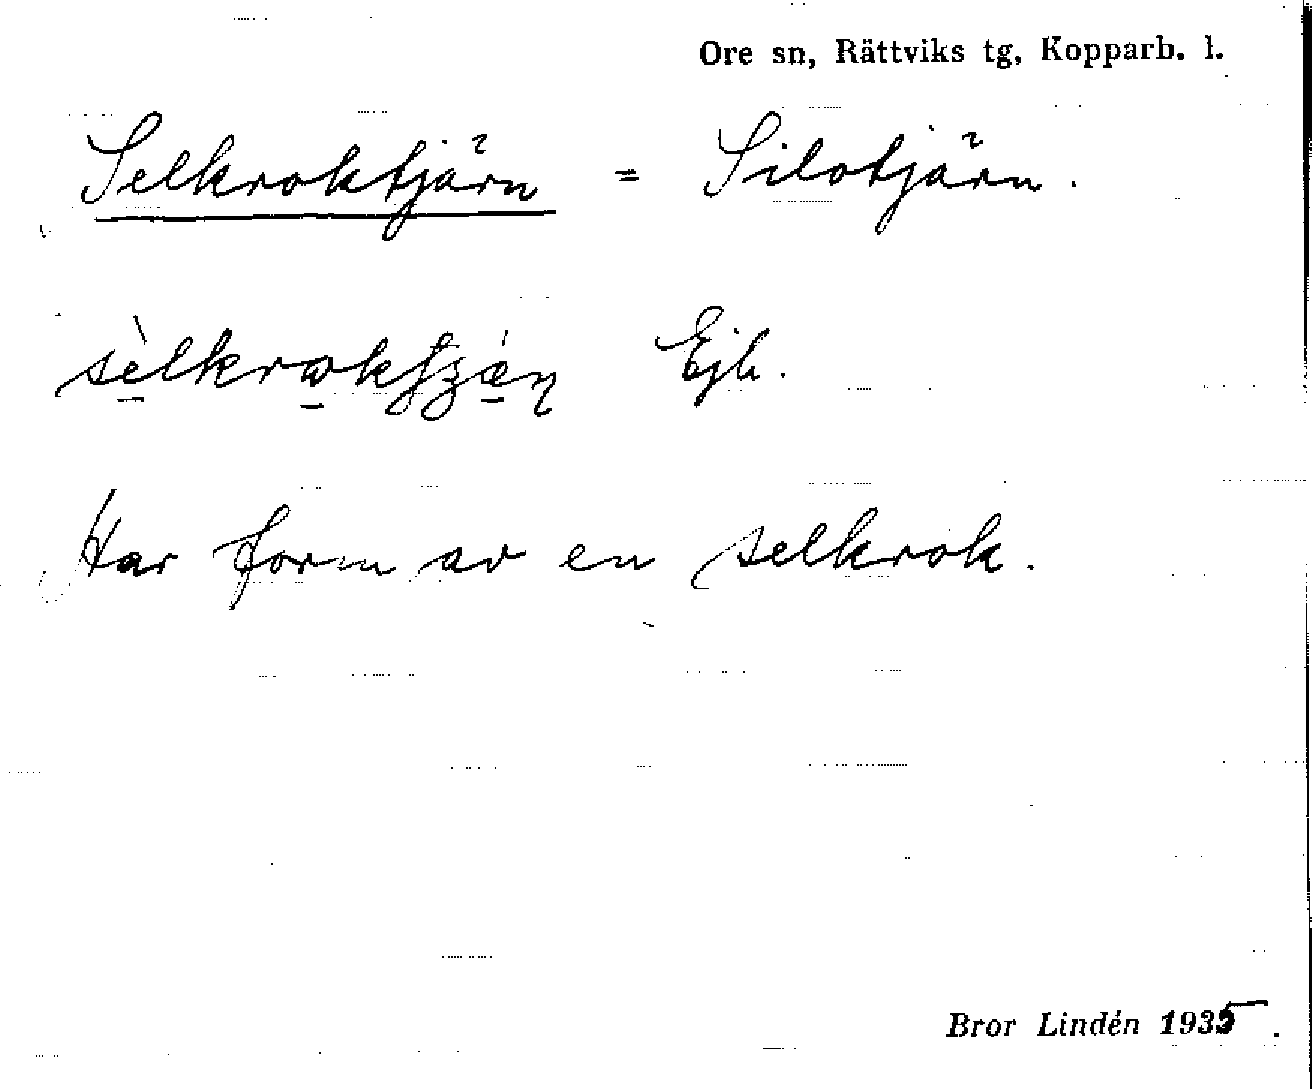 Ore sn, Rättviks tg, Kopparb. l.
Selkroktjärn = Silotjärn.
Ejh.
Har form av en selkrok.
Bror Lindén 1935.